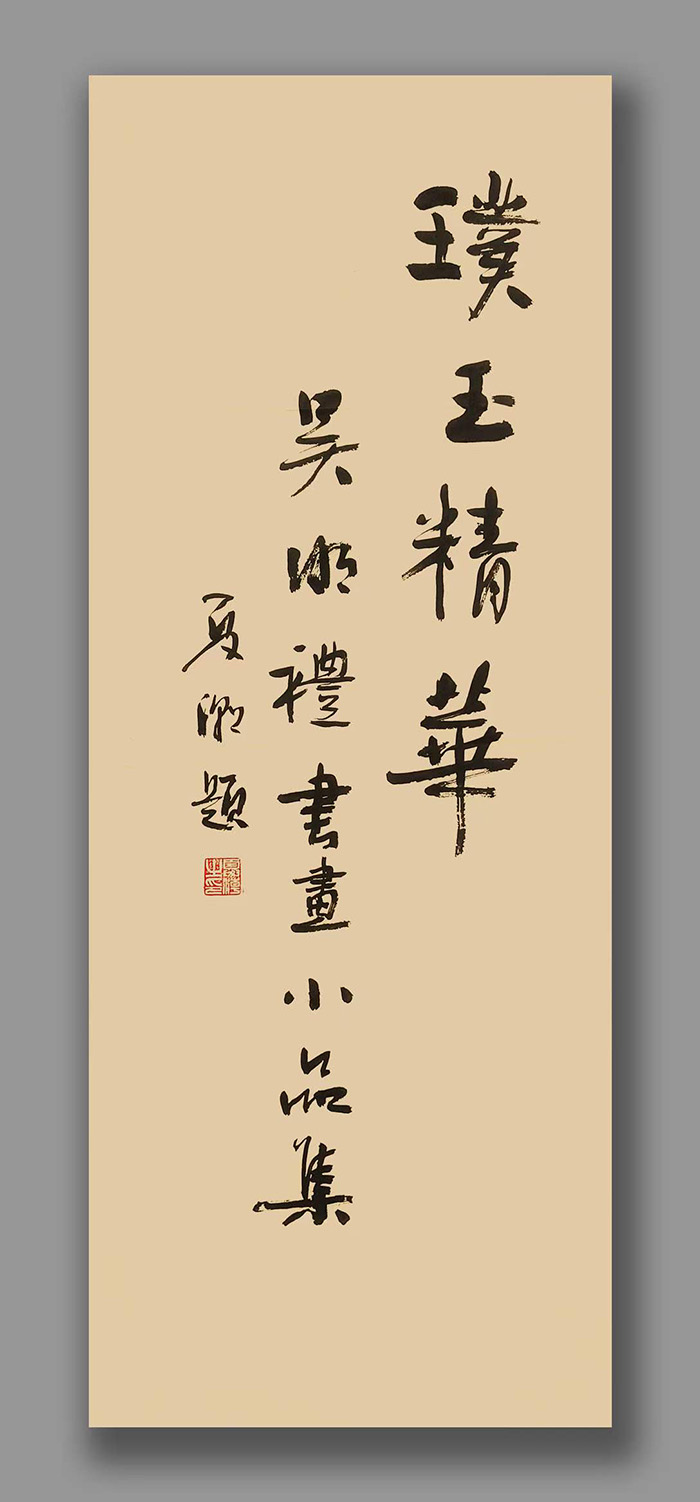 璞玉精華
吴明禮書畫小品集
夏潮題